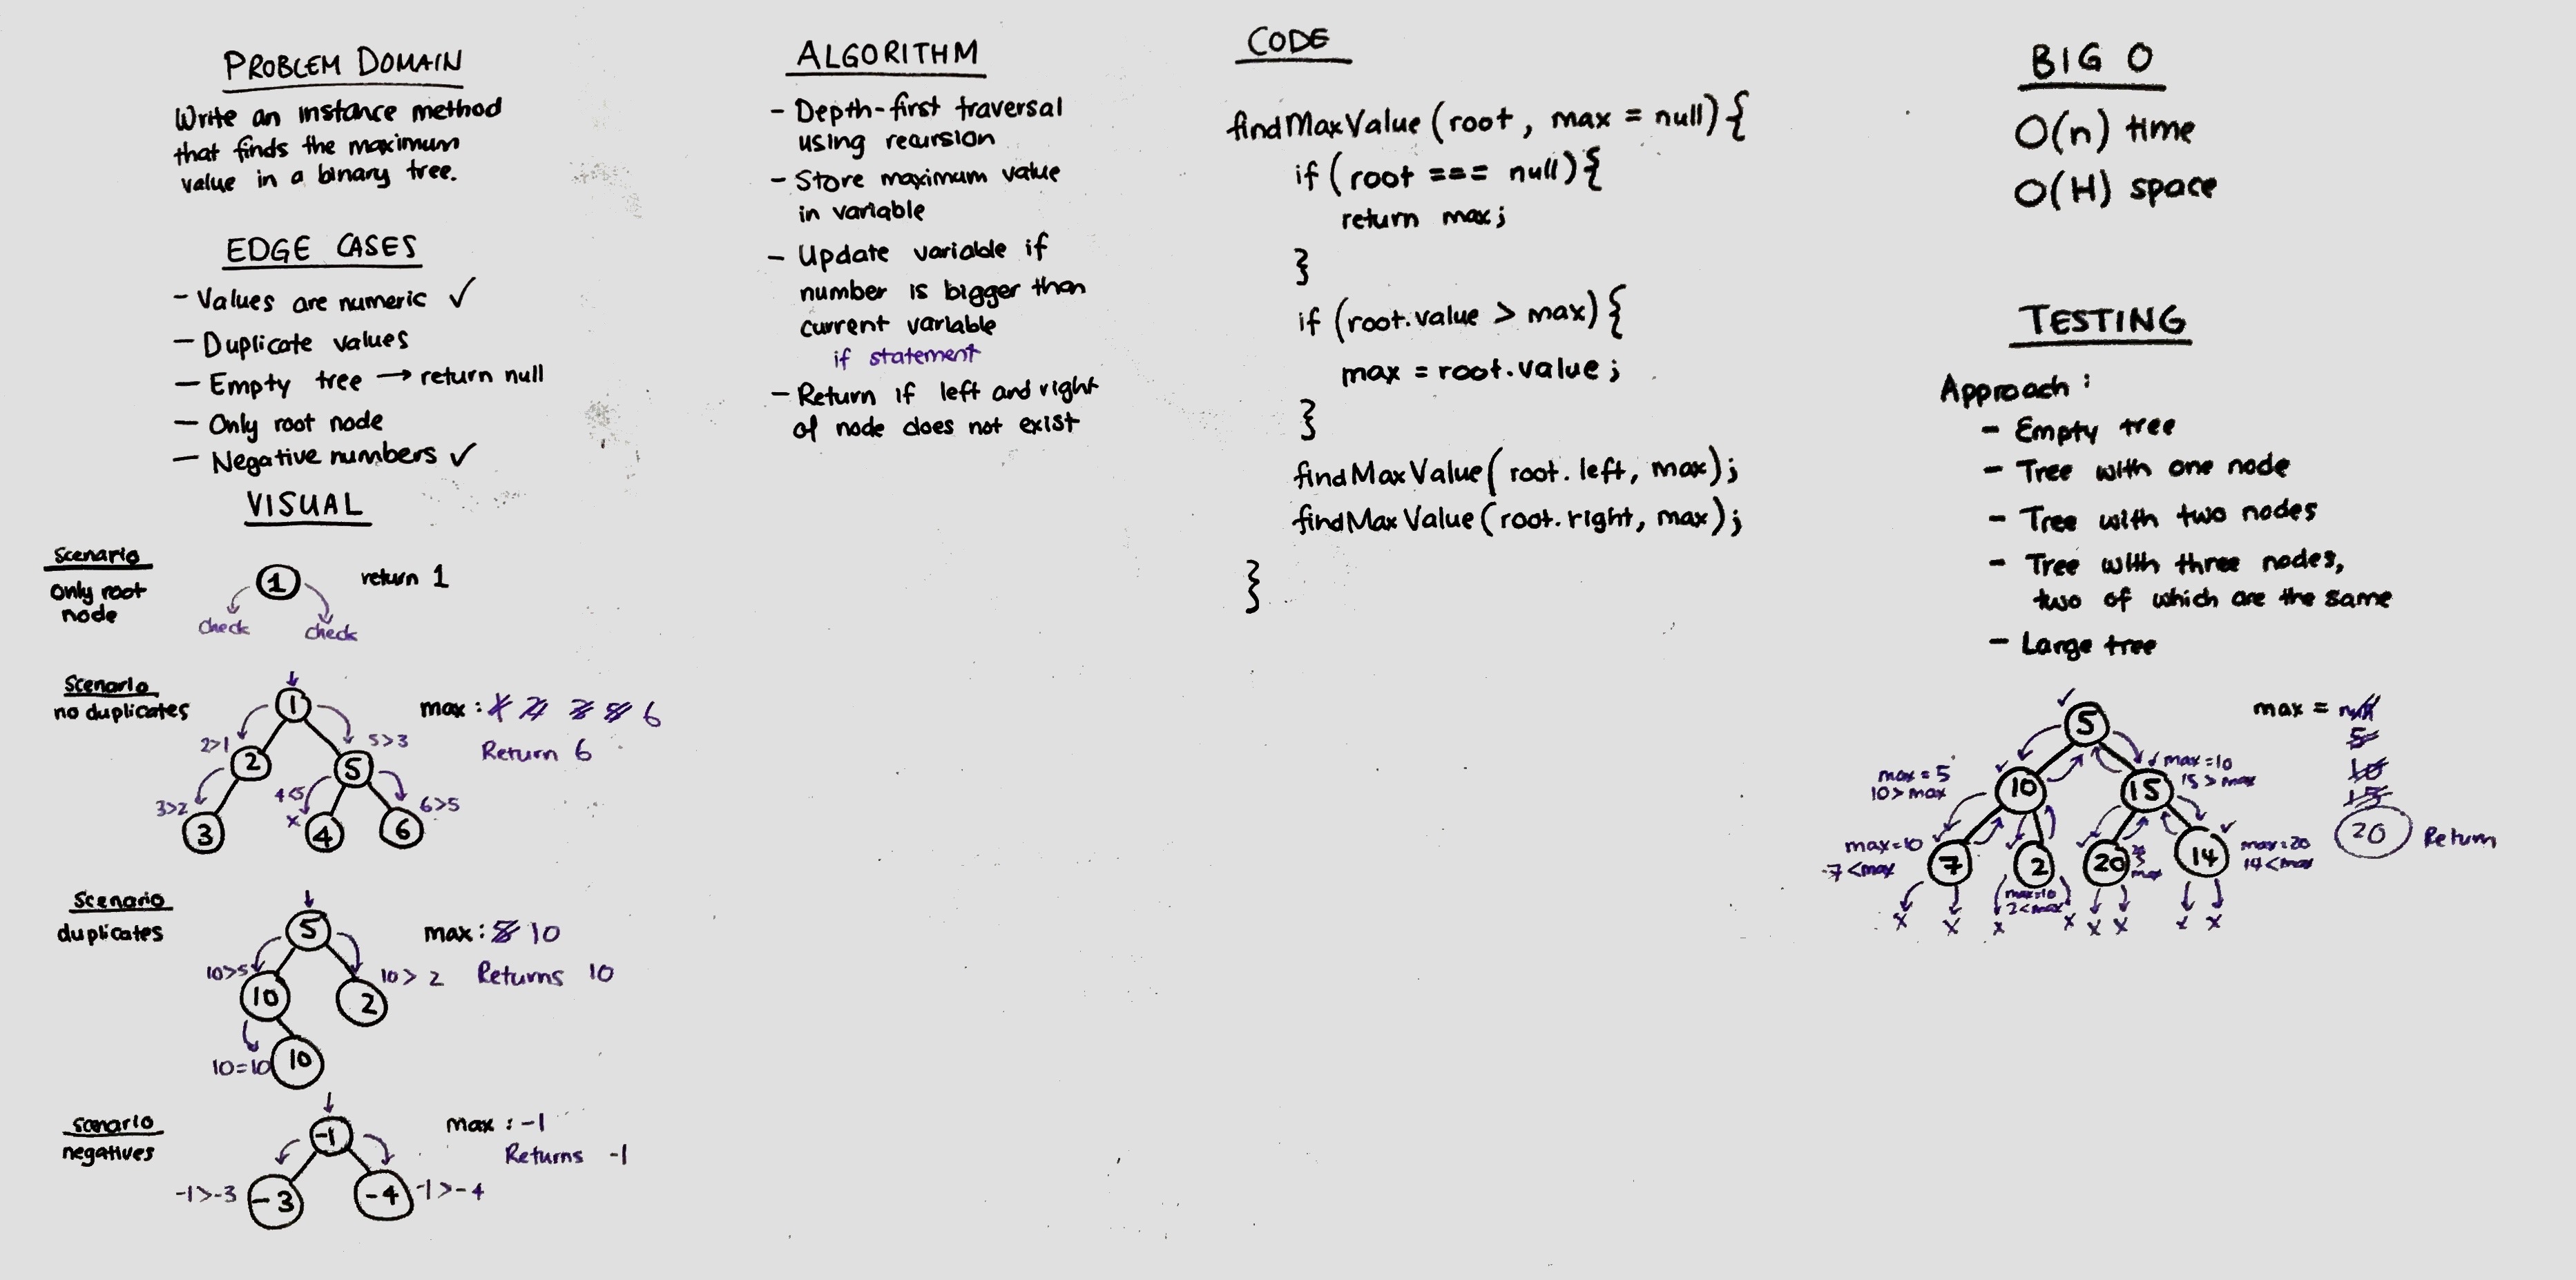 PROBLEM DOMAIN
Write an instance method
that finds the maximum
value in a binary tree.
EDGE CASES
- Values are numeric ✓
- Duplicate values
- Empty tree → return null
- Only root node
- Negative numbers ✓
VISUAL
Scenario
Only root
node
1
return 1
check
check
Scenario
no duplicates
1
max: 1 2 3 5 6
Return 6
2>1
5>3
2
5
3>2
4<5
6>5
x
3
4
6
Scenario
duplicates
5
max: 5 10
10>5
10> 2
Returns 10
10
2
10=10
10
Scenario
negatives
-1
max : -1
Returns -1
-1>-3
-3
-4
-1>-4
ALGORITHM
- Depth-first traversal
using recursion
- Store maximum value
in variable
- Update variable if
number is bigger than
current variable
if statement
- Return if left and right
of node does not exist
CODE
findMaxValue(root, max = null){
if (root === null){
return max;
}
if (root.value > max){
max = root.value;
}
findMaxValue(root.left, max);
findMaxValue(root.right, max);
}
BIG O
O(n) time
O(H) space
TESTING
Approach:
- Empty tree
- Tree with one node
- Tree with two nodes
- Tree with three nodes,
two of which are the same
- Large tree
5
max = null
5
10
15
20 Return
max=5
10>max
10
15
max=10
15>max
max=10
7<max
7
2
20
20
>
max
14
max=20
14<max
max=10
2<max
x x x x x x x x